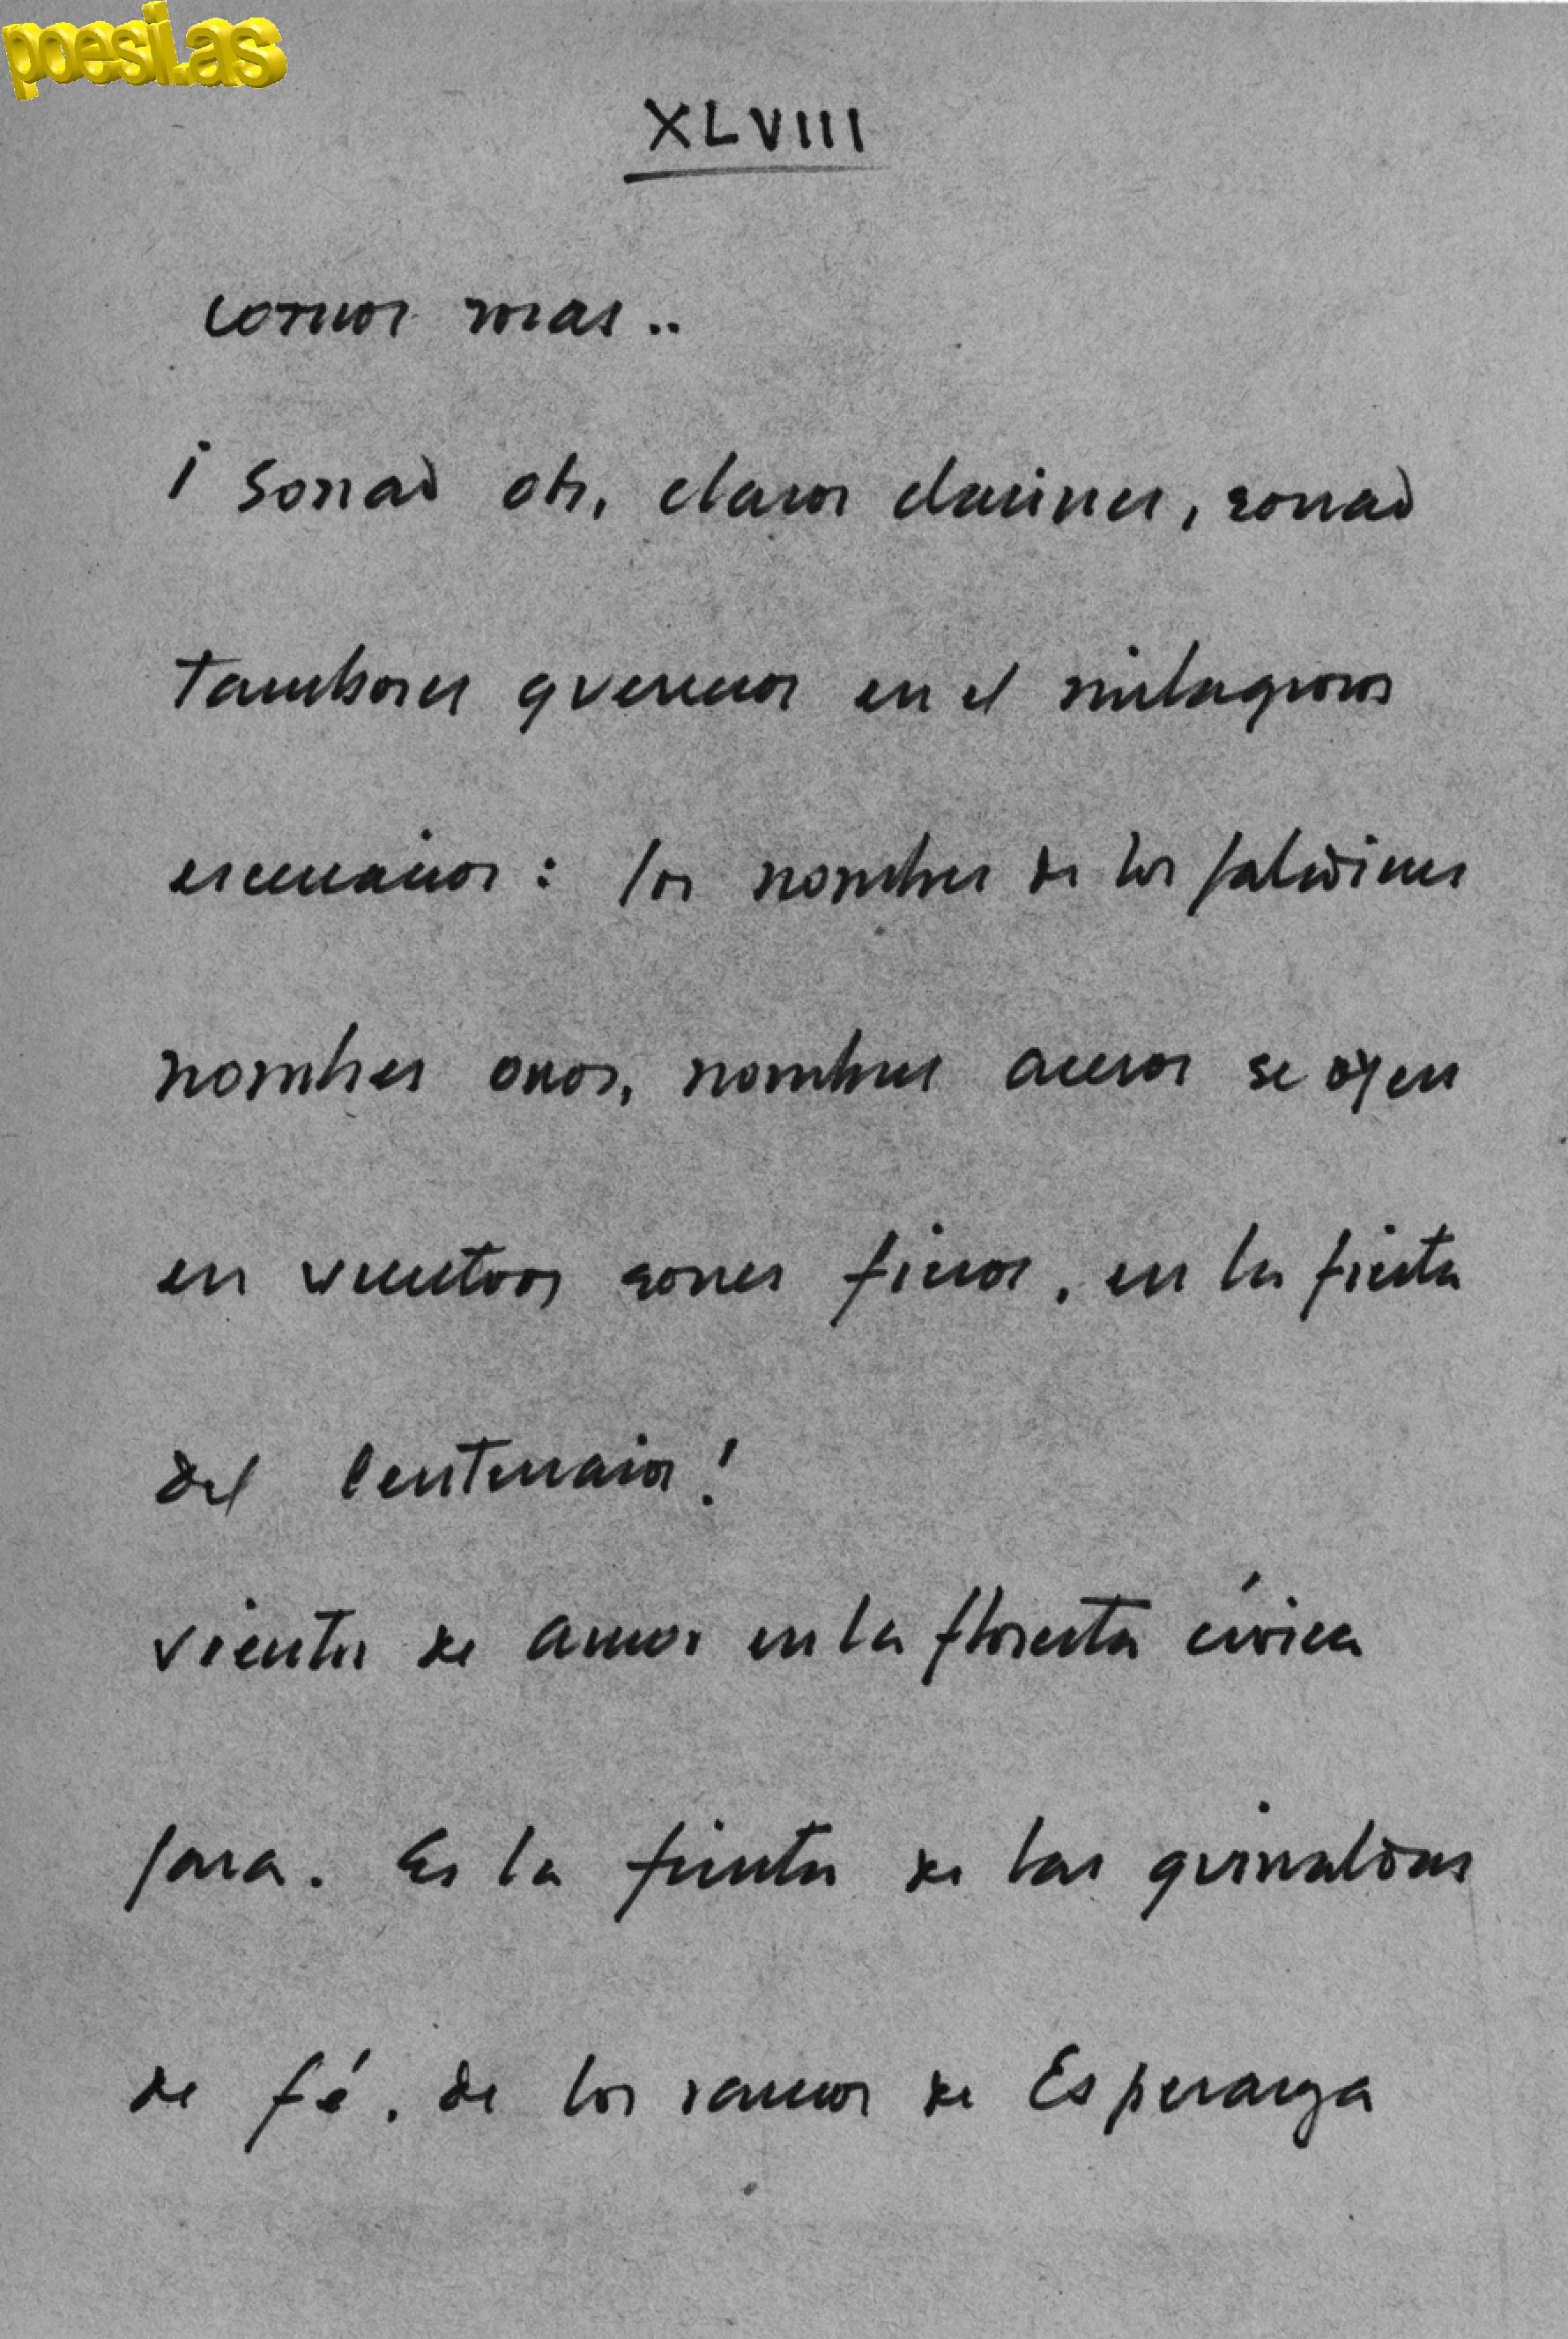 poesi.as
XLVIII
como rosas..
¡Sonad oh, claros clarines, sonad
tambores guerreros en el milagroso
escenario: los nombres de los paladines
nombres oros, nombres aceros se oyen
en vuestros sones finos, en la fiesta
del Centenario!
viento de amor en la floresta cívica
pasa. Es la fiesta de las guirnaldas
de fé, de los ramos de Esperanza